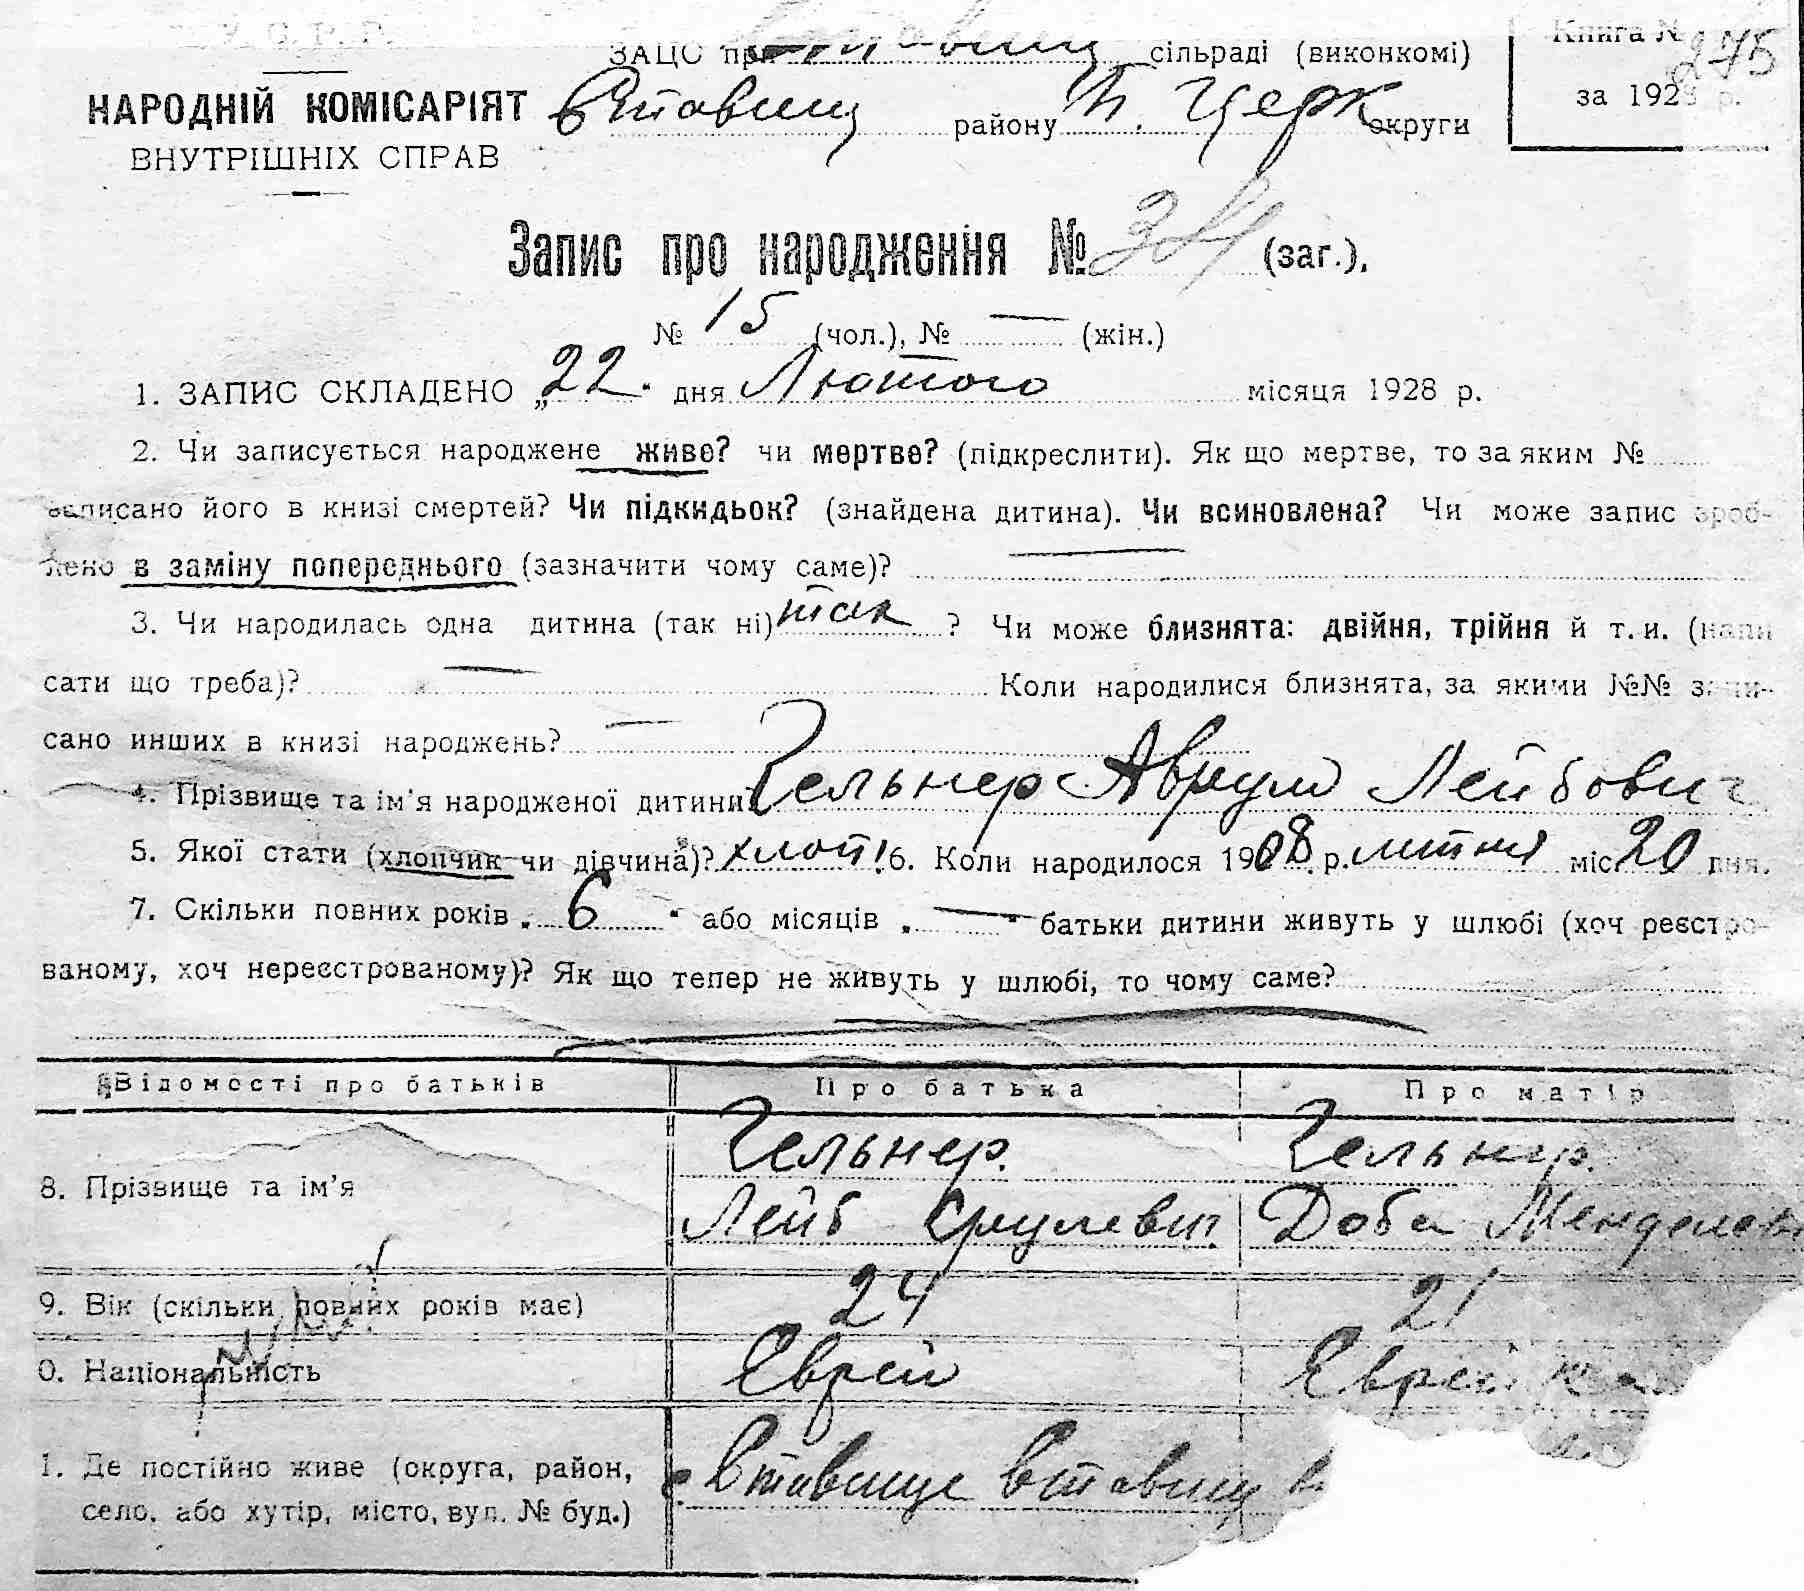 У. С. Р. Р.
ЗАЦС при Ставищ сільраді (виконкомі)
Книга №
275
за 1928 р.
НАРОДНІЙ КОМІСАРІЯТ
Ставищ району Б. Церк округи
ВНУТРІШНІХ СПРАВ
Запис про народження № (заг.),
№ 15 (чол.), № — (жін.)
1. ЗАПИС СКЛАДЕНО „22" дня Лютого місяця 1928 р.
2. Чи записується народжене живе? чи мертве? (підкреслити). Як що мертве, то за яким №
записано його в книзі смертей? Чи підкидьок? (знайдена дитина). Чи всиновлена? Чи може запис зроб-
лено в заміну попереднього (зазначити чому саме)? —
3. Чи народилась одна дитина (так ні) так ? Чи може близнята: двійня, трійня й т. и. (напи
сати що треба)? — Коли народилися близнята, за якими №№ запи-
сано инших в книзі народжень? —
4. Прізвище та ім'я народженої дитини Гельнер Аврум Лейбович
5. Якої стати (хлопчик чи дівчина)? хлоп. 6. Коли народилося 1908 р. міс. 20 дня.
7. Скільки повних років „ 6 " або місяців „ — " батьки дитини живуть у шлюбі (хоч реєстро-
ваному, хоч нереєстрованому)? Як що тепер не живуть у шлюбі, то чому саме?
Відомості про батьків Про батька Про матір
8. Прізвище та ім'я
Гельнер. Гельнер.
Лейб Срулевич. Доба Менделевн
9. Вік (скільки повних років має) 24 21
0. Національність Єврей Єврейка
1. Де постійно живе (округа, район,
с. Ставище Ставищ
село, або хутір, місто, вул. № буд.)